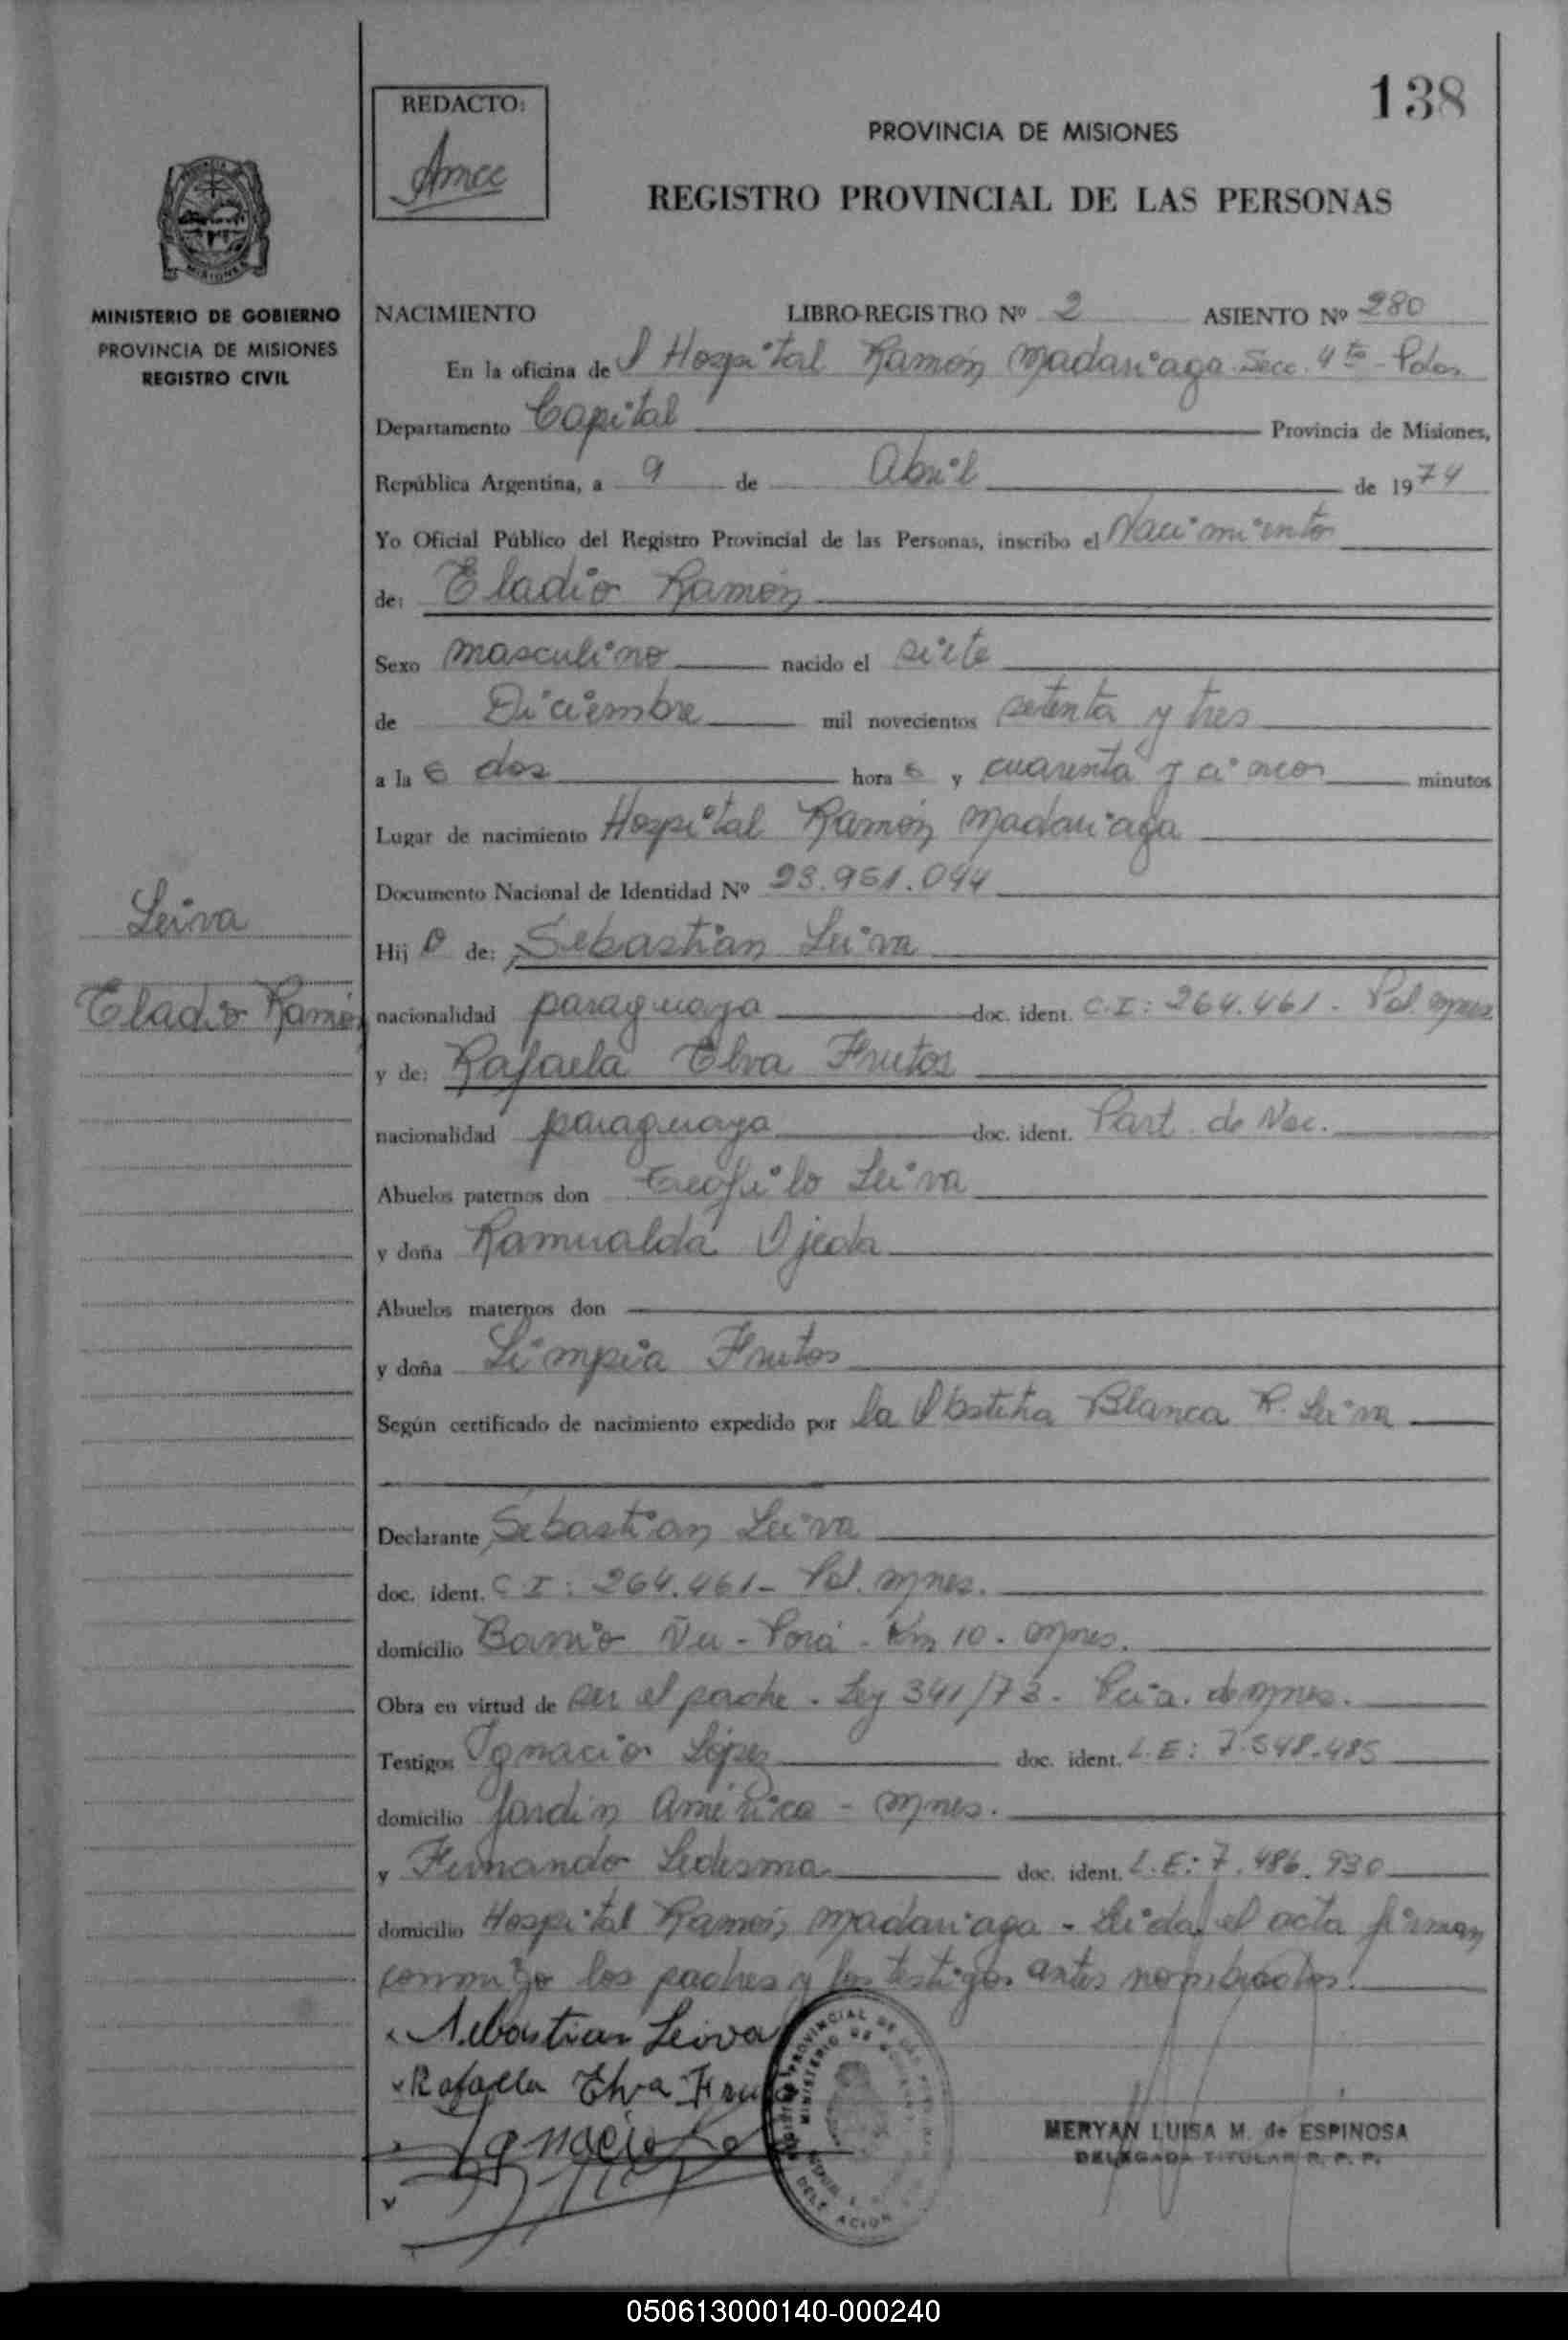 138
REDACTO:
Amcc
PROVINCIA DE MISIONES
REGISTRO PROVINCIAL DE LAS PERSONAS
MINISTERIO DE GOBIERNO
PROVINCIA DE MISIONES
REGISTRO CIVIL
NACIMIENTO LIBRO-REGISTRO Nº 2 ASIENTO Nº 280
En la oficina de l Hospital Ramón Madariaga. Secc. 4ta - Pdas.
Departamento Capital Provincia de Misiones,
República Argentina, a 9 de Abril de 1974
Yo Oficial Público del Registro Provincial de las Personas, inscribo el Nacimiento
de: Eladio Ramón
Sexo masculino nacido el siete
de Diciembre mil novecientos setenta y tres
a la s dos hora s y cuarenta y cinco minutos
Lugar de nacimiento Hospital Ramón Madariaga
Documento Nacional de Identidad Nº 23.951.044
Leiva
Hij o de: Sebastian Leiva
Eladio Ramón
nacionalidad paraguaya doc. ident. C.I: 264.461 - Pol. Mnes.
y de: Rafaela Elva Frutos
nacionalidad paraguaya doc. ident. Part. de Nac.
Abuelos paternos don Teofilo Leiva
y doña Ramualda Ojeda
Abuelos maternos don
y doña Limpia Frutos
Según certificado de nacimiento expedido por la Obstetra Blanca R. Leiva
Declarante Sebastian Leiva
doc. ident. C I: 264.461 - Pol. Mnes.
domicilio Barrio Ñu - Porá - Km 10 - Mnes.
Obra en virtud de ser el padre. Ley 341/73. Pcia. de Mnes.
Testigos Ignacio López doc. ident. L.E: 7.548.485
domicilio Jardín América - Mnes.
y Fernando Ledesma doc. ident. L.E: 7.486.930
domicilio Hospital Ramón Madariaga - Leida el acta firman
conmigo los padres y los testigos antes nombrados.
Sebastian Leiva
Rafaela Elva Fru
Ignacio
MERYAN LUISA M. de ESPINOSA
DELEGADA TITULAR R. P. P.
050613000140-000240